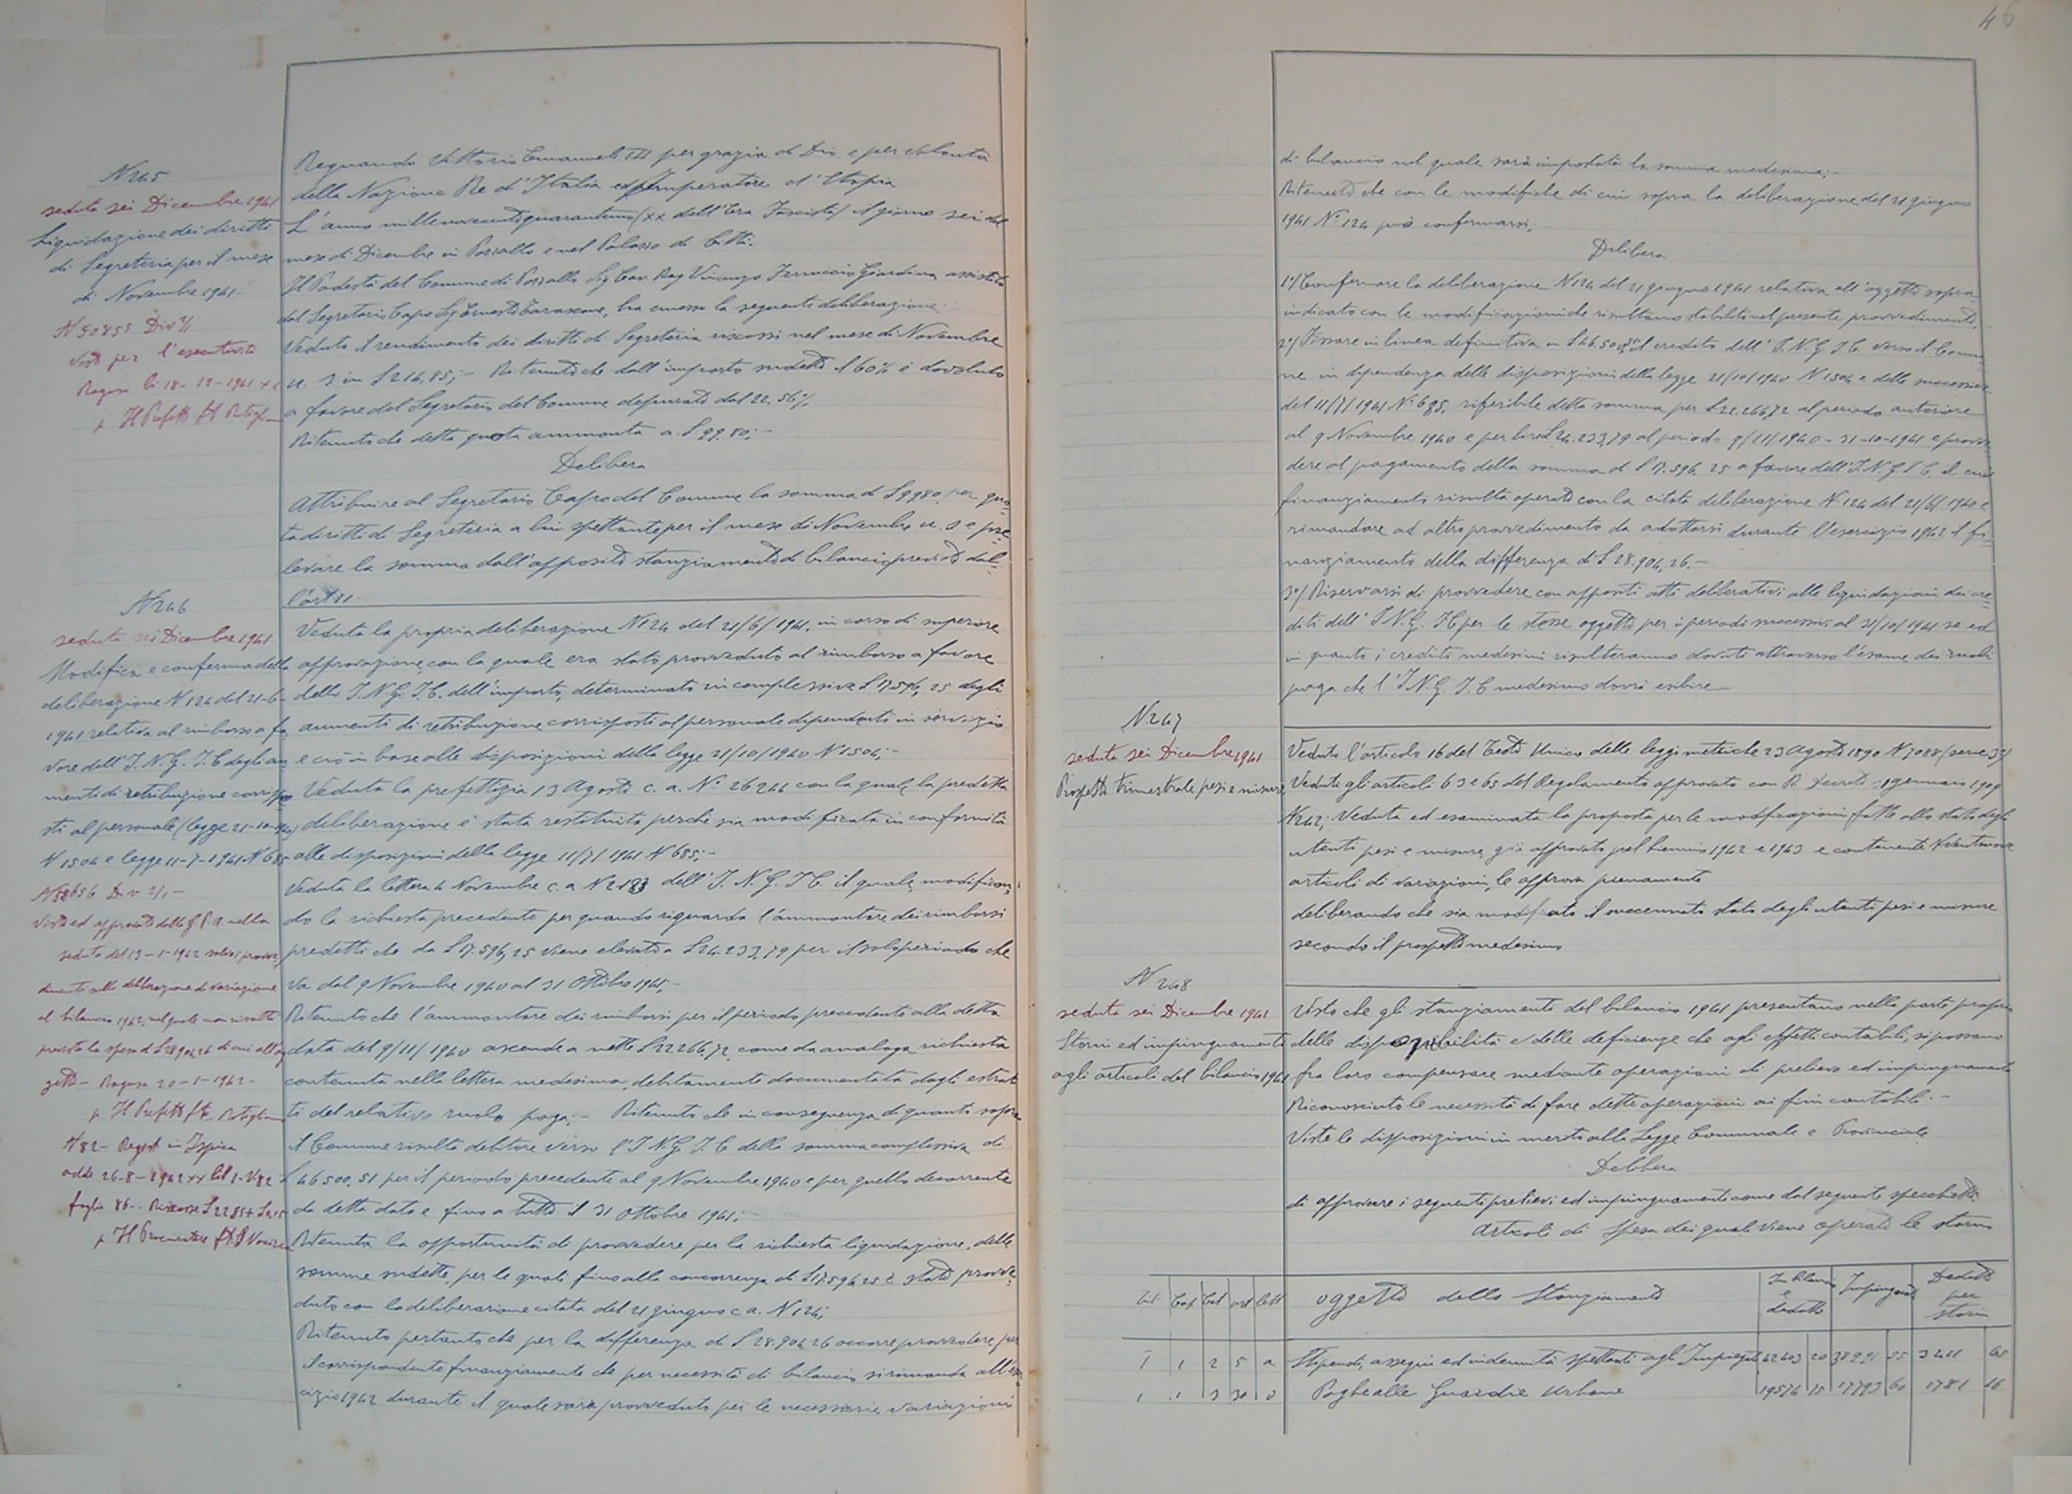 46
N 245
seduta sei Dicembre 1941
Liquidazione dei diritti
di Segreteria per il mese
di Novembre 1941-
N 50855 Div 2/1
Visto per l'esecutività
Ragusa li 18-12-1941 XX
p Il Prefetto ft
Regnando Vittorio Emanuele III per grazia di Dio e per volontà
della Nazione Re d'Italia ed Imperatore d'Etiopia
L'anno millenovecentoquarantuno (XX dell'Era Fascista) il giorno sei del
mese di Dicembre in Pozzallo e nel Palazzo di Città.
Il Podestà del Comune di Pozzallo Sig Cav Rag Vincenzo Ferruccio Giardina assistito
dal Segretario Capo Sig Ernesto Tarascone, ha emesso la seguente deliberazione:
Veduto il rendimento dei diritti di Segreteria riscossi nel mese di Novembre
u. s in £ 214,85;- Ritenuto che dall'importo suddetto il 60% è dovoluto
a favore del Segretario del Comune depurato dal 22.56%
Ritenuto che detta quota ammonta a £ 99.80;-
Delibera
Attribuire al Segretario Capo del Comune la somma di £ 99.80, per quo-
ta diritti di Segreteria a lui spettante per il mese di Novembre u. s e pre-
levare la somma dall'apposito stanziamento di bilancio previsto dal-
l'art 21-
N 246
seduta sei Dicembre 1941
Modifica e conferma della
deliberazione N 124 del 21-6-
1941 relativa al rimborso a fa
vore dell'I.N.G.I.C degli au
menti di retribuzione corrispo
sti al personale (legge 21-10-1940
N 1504 e legge 11-7-1941 N 685
N 58656 Div 2/1-
Visto ed approvato dalla G.P.A. nella
seduta del 13-1-1942 salvo i provve
dimenti sulla deliberazione di variazione
al bilancio 1942, nel quale non risulta
prevista la spesa di £ 28904,26 di cui all'og
getto- Ragusa 20-1-1942-
p Il Prefetto ft
N 82- Regist in Ispica
addì 26-8-1942 XX
foglio 86-. Riscosse
p Il Procuratore ft
Veduta la propria deliberazione N 124 del 21/6/1941, in corso di superiore
approvazione, con la quale era stato provveduto al rimborso a favore
dello I.N.G.I.C. dell'importo, determinato in complessive £ 17.596,25 degli
aumenti di retribuzione corrisposti al personale dipendenti in servizio
e ciò in base alle disposizioni della legge 21/10/1940 N 1504;-
Veduta la prefettizia 13 Agosto c. a. N° 26244 con la quale la predetta
deliberazione è stata restituita perché sia modificata in conformità
alle disposizioni della legge 11/7/1941 N 685;-
Veduta la lettera 4 Novembre c. a N 2183 dell'I.N.G.I.C. il quale, modifican-
do la richiesta precedente per quando riguarda l'ammontare dei rimborsi
predetti che da £ 17.596,25 viene elevato a £ 24.233,79 per il solo periodo che
va dal 9 Novembre 1940 al 31 Ottobre 1941;-
Ritenuto che l'ammontare dei rimborsi per il periodo precedente alla detta
data del 9/11/1940 ascende a nette £ 22266,72 come da analoga richiesta
contenuta nella lettera medesima, debitamente documentata dagli estrat
ti del relativo ruolo paga;- Ritenuto che in conseguenza di quanto sopra
il Comune risulta debitore verso l'I.N.G.I.C della somma complessiva di
£ 46500,51 per il periodo precedente al 9 Novembre 1940 e per quello decorrente
da detta data e fino a tutto il 31 Ottobre 1941;
Ritenuta la opportunità di provvedere per la richiesta liquidazione, delle
somme suddette, per le quali fino alla concorrenza di £ 17.596,25 è stato provve-
duto con la deliberazione citata del 21 giugno c a. N 124;
Ritenuto pertanto che per la differenza di £ 28.904,26 occorre provvedere per
il corrispondente finanziamento che per necessità di bilancio si rimanda all'eser
cizio 1942 durante il quale sarà provveduto per le necessarie variazioni
di bilancio nel quale sarà impostata la somma medesima;-
Ritenuto che con le modifiche di cui sopra la deliberazione del 21 giugno
1941 N° 124 può confermarsi;
Delibera
1°/ Confermare la deliberazione N 124 del 21 giugno 1941 relativa all'oggetto sopra
indicato con le modificazioni che risultano stabilite nel presente provvedimento,
2°/ Fissare in linea definitiva in £ 46.500,51 il credito dell'I.N.G.I.C. verso il Comu-
ne in dipendenza delle disposizioni della legge 21/10/1940 N 1504 e delle successive
del 11/7/1941 N° 685, riferibile detta somma per £ 22.266,72 al periodo anteriore
al 9 Novembre 1940 e per lire £ 24.233,79 al periodo 9/11/1940 - 31-10-1941 e provve
dere al pagamento della somma di £ 17.596,25 a favore dell'I.N.G.I.C. il cui
finanziamento risulta operato con la citata deliberazione N 124 del 21/6/1940 e
rimandare ad altro provvedimento da adottarsi durante l'esercizio 1942 il fi-
nanziamento della differenza di £ 28.904,26.-
3°/ Riservarsi di provvedere con appositi atti deliberativi alle liquidazioni dei cre-
diti dell'I.N.G.I.C per lo stesso oggetto per i periodi successivi al 31/10/1941 se ed
in quanto i crediti medesimi risulteranno dovuti attraverso l'esame dei ruoli
paga che l'I.N.G.I.C medesimo dovrà esibire
N 247
seduta sei Dicembre 1941
Prospetto trimestrale pesi e misure
Veduto l'articolo 16 del Testo Unico delle leggi metriche 23 Agosto 1890 N 7088 (serie 3ª)
Veduti gli articoli 63 e 65 del Regolamento approvato con R Decreto 31 gennaio 1909
N 242; Veduta ed esaminata la proposta per le modificazioni fatte allo stato degli
utenti pesi e misure, già approvato pel biennio 1942 e 1943 e contenente N ventinove
articoli di variazioni, le approva pienamente
deliberando che sia modificato il succennato stato degli utenti pesi e misure
secondo il prospetto medesimo
N 248
seduta sei Dicembre 1941
Storni ed impinguamenti
agli articoli del bilancio 1941
Visto che gli stanziamenti del bilancio 1941 presentano nella parte propria
delle disponibilità e delle deficienze che agli effetti contabili, si possano
fra loro compensare mediante operazioni di prelievo ed impinguamento
Riconosciuta le necessità di fare dette operazioni ai fini contabili.-
Viste le disposizioni in merito alla Legge Comunale e Provinciale
Delibera
di approvare i seguenti prelievi ed impinguamenti come dal seguente specchietto
Articoli di spesa dei quali viene operato lo storno
Tit Cap Cat art Lett oggetto dello Stanziamento In bilancio e dedotto Impinguati Dedotti per storni
I 1 2 5 a Stipendi, assegni ed indennità spettanti agli Impiegati 42403 20 38991 55 3411 65
1 1 3 30 0 Paghe alle Guardie Urbane 19574 75 17793 60 1781 16